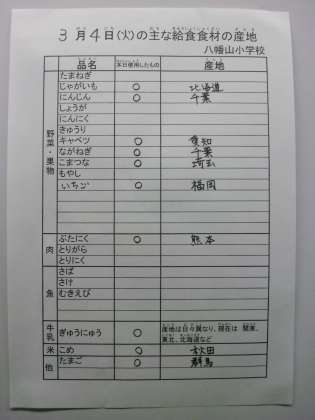 3月4日(火)の主な給食食材の産地
八幡山小学校
品名 本日使用したもの 産地
野菜・果物
たまねぎ
じゃがいも ○ 北海道
にんじん ○ 千葉
しょうが
にんにく
きゅうり
キャベツ ○ 愛知
ながねぎ ○ 千葉
こまつな ○ 埼玉
もやし
いちご ○ 福岡
肉
ぶたにく ○ 熊本
とりがら
とりにく
魚
さば
さけ
むきえび
牛乳 ぎゅうにゅう ○ 産地は日々異なり、現在は 関東、
東北、北海道など
米 こめ ○ 秋田
他 たまご ○ 群馬